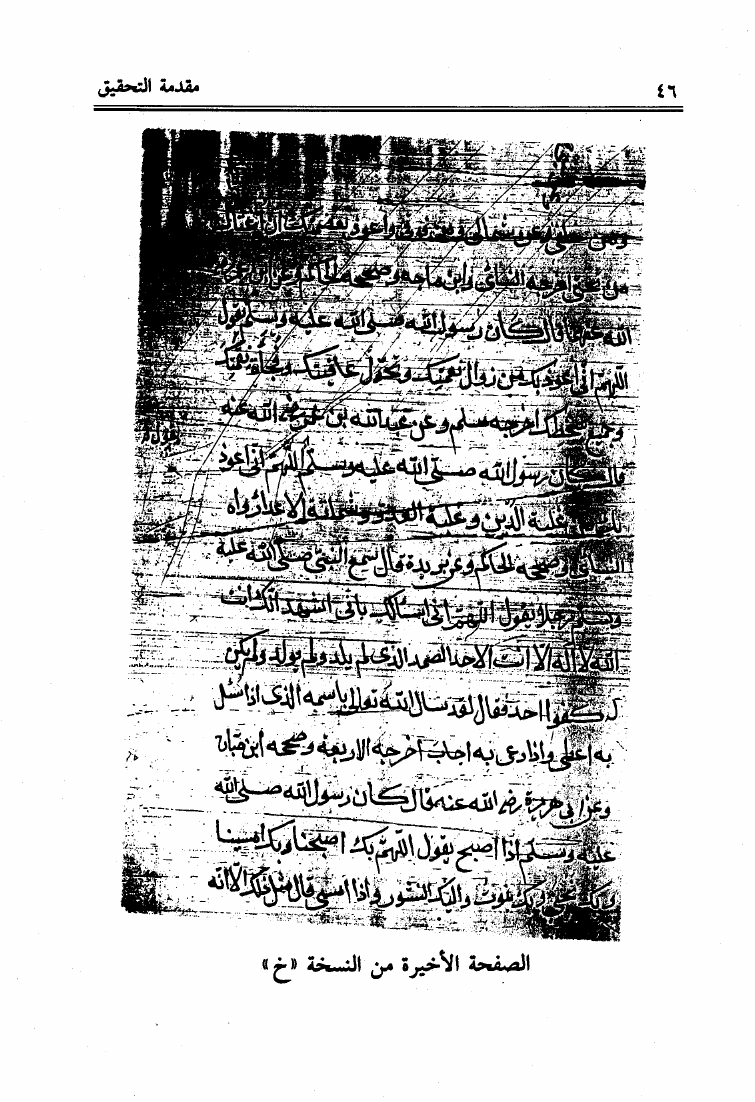 ٤٦ مقدمة التحقيق
وعن شمالي ومن فوقي وأعوذ بعظمتك ان اغتال
من تحتي اخرجه النسائي وابن ماجه وصححه الحاكم وعن ابن عمر
الله عنهما قال كان رسول الله صلى الله عليه وسلم يقول
اللهم اني اعوذ بك من زوال نعمتك وتحول عافيتك وفجاة نقمتك
وجميع سخطك اخرجه مسلم وعن عبد الله بن عمر رضي الله عنه
قال كان رسول الله صلى الله عليه وسلم اللهم اني اعوذ
يقول
غلبة الدين وغلبة العدو وشماتة الاعدا رواه
النسائي وصححه الحاكم وعن بريدة قال سمع النبي صلى الله علية
وسلم رجلا يقول اللهم اني اسالك باني اشهد انك انت
الله لا اله الا انت الاحد الصمد الذي لم يلد ولم يولد ولم يكن
له كفوا احد فقال لقد سال الله تعالى باسمه الذي اذا سئل
به اعطى واذا دعى به اجاب اخرجه الاربعة وصححه ابن حبان
وعن ابي هريرة رضي الله عنه قال كان رسول الله صلى الله
عليه وسلم اذا اصبح يقول اللهم بك اصبحنا وبك امسينا
وبك نحيى وبك نموت واليك النشور واذا امسى قال مثل ذلك الا انه
الصفحة الأخيرة من النسخة «خ»